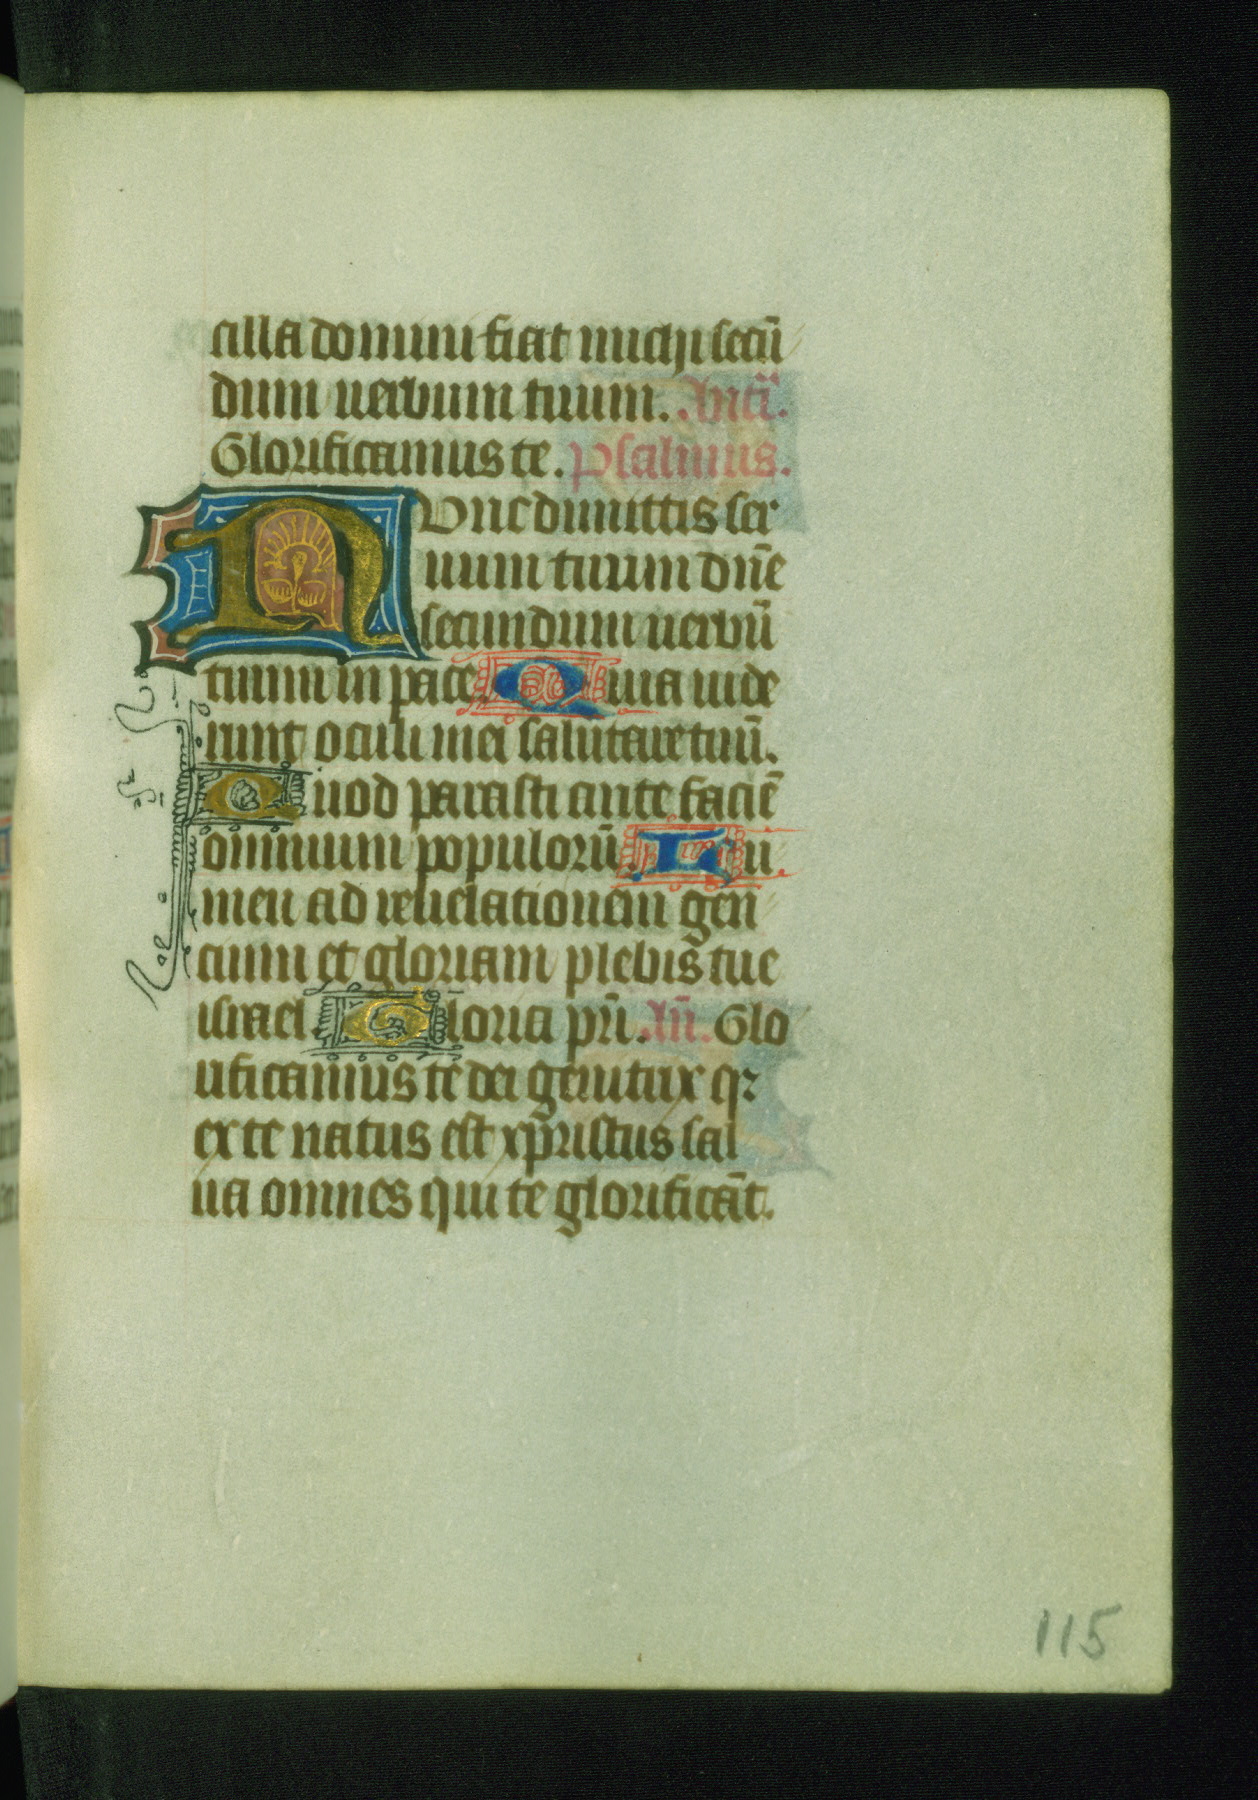 cilla domini fiat michi secū
dum uerbum tuum. Antā.
Glorificamus te. psalmus.
NUnc dimittis ser
uum tuum dn̄e
secundum uerbū
tuum in pace. Quia uide
runt oculi mei salutare tuū.
Quod parasti ante faciē
omnium populorū. Lu
men ad reuelationem gen
cium et gloriam plebis tue
israel. Gloria pr̄i. Añ. Glo
rificamus te dei genitrix qꝛ
ex te natus est xp̄ristus sal
ua omnes qui te glorificāt.
115